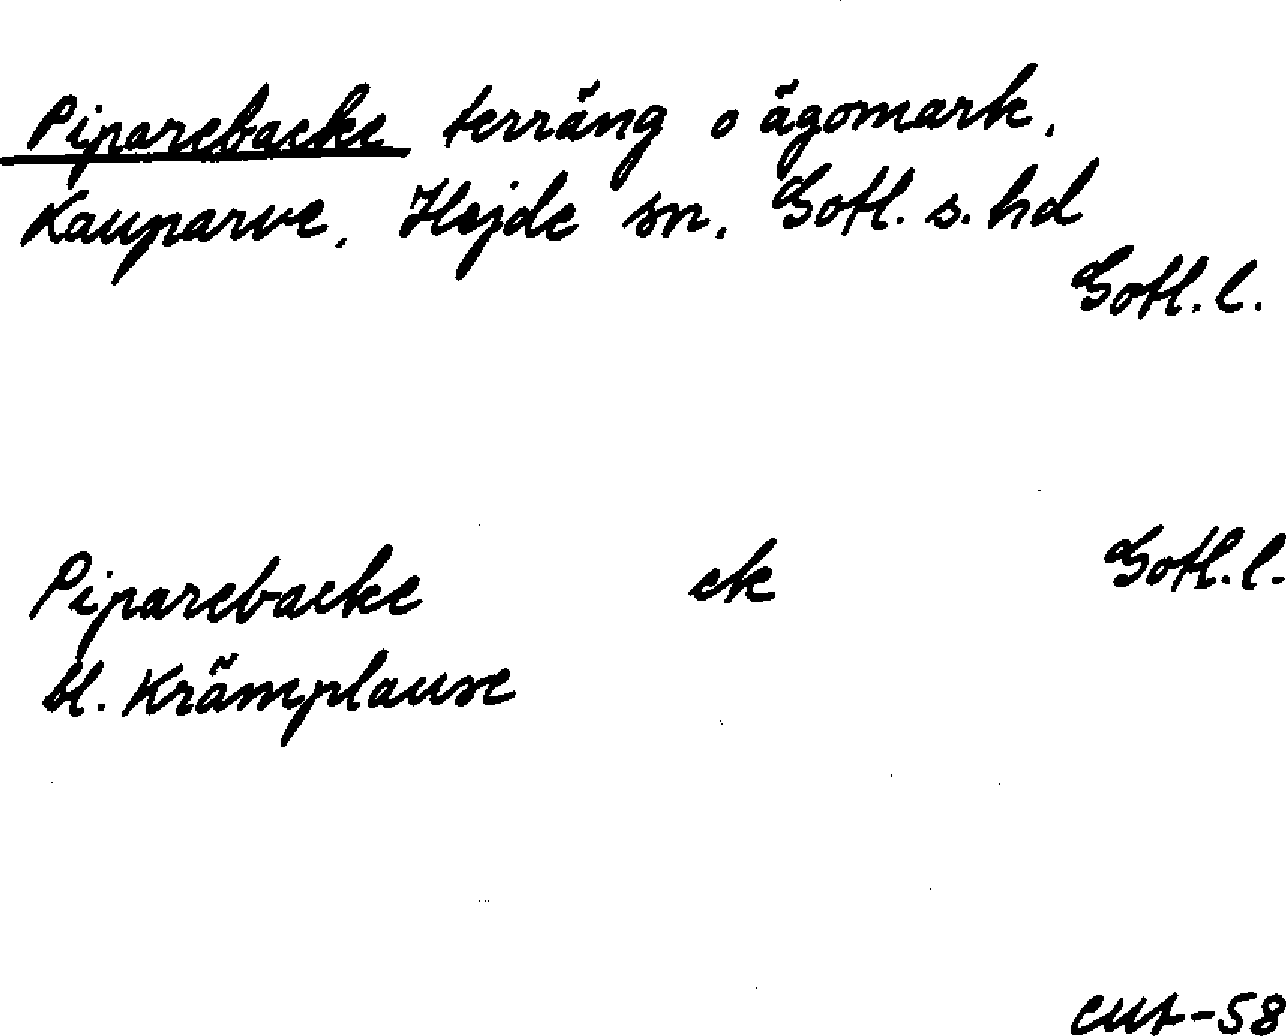 Piparebacke terräng o ägomark,
Kauparve, Hejde sn, Gotl. s. hd
Gotl. l.
Piparebacke ek Gotl. l.
bl. Krämplause